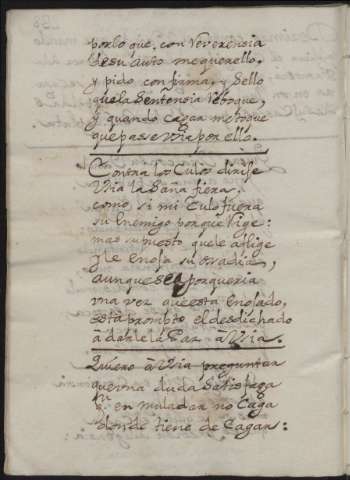 por lo que, con Reverencia
de su Auto me querello,
y pido con firma, y sello
que la Sentencia reboque,
y quando cagar me toque
que pase Vsia por ello.
Contra los Culos dirije
Vsia la Saña fiera,
como si mi Culo fuera
su Enemigo porque rige:
mas supuesto que le aflige
y le enoja su osadia,
aunque sea porqueria
una vez que está enojado,
está prompto el desdichado
à darle la Paz à Vsia.
Quiero à Vsia preguntar
que una duda satisfaga
si en muladar no Caga
donde tiene de Cagar: